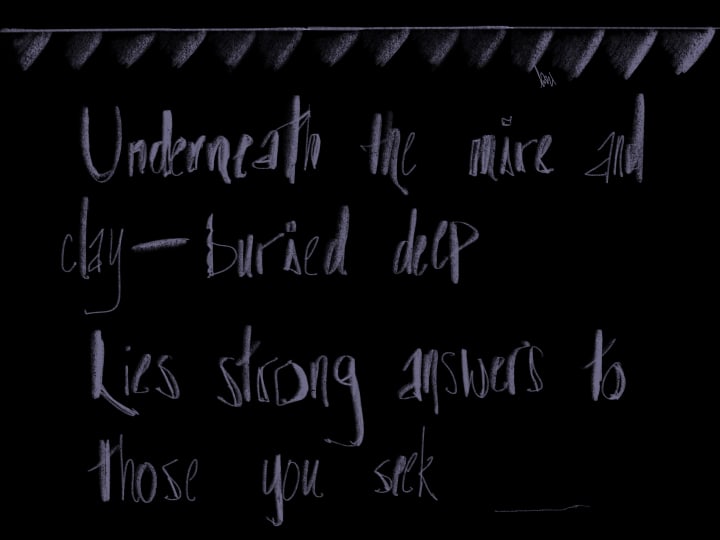 Underneath the mire and
clay—buried deep
Lies strong answers to
those you seek ____